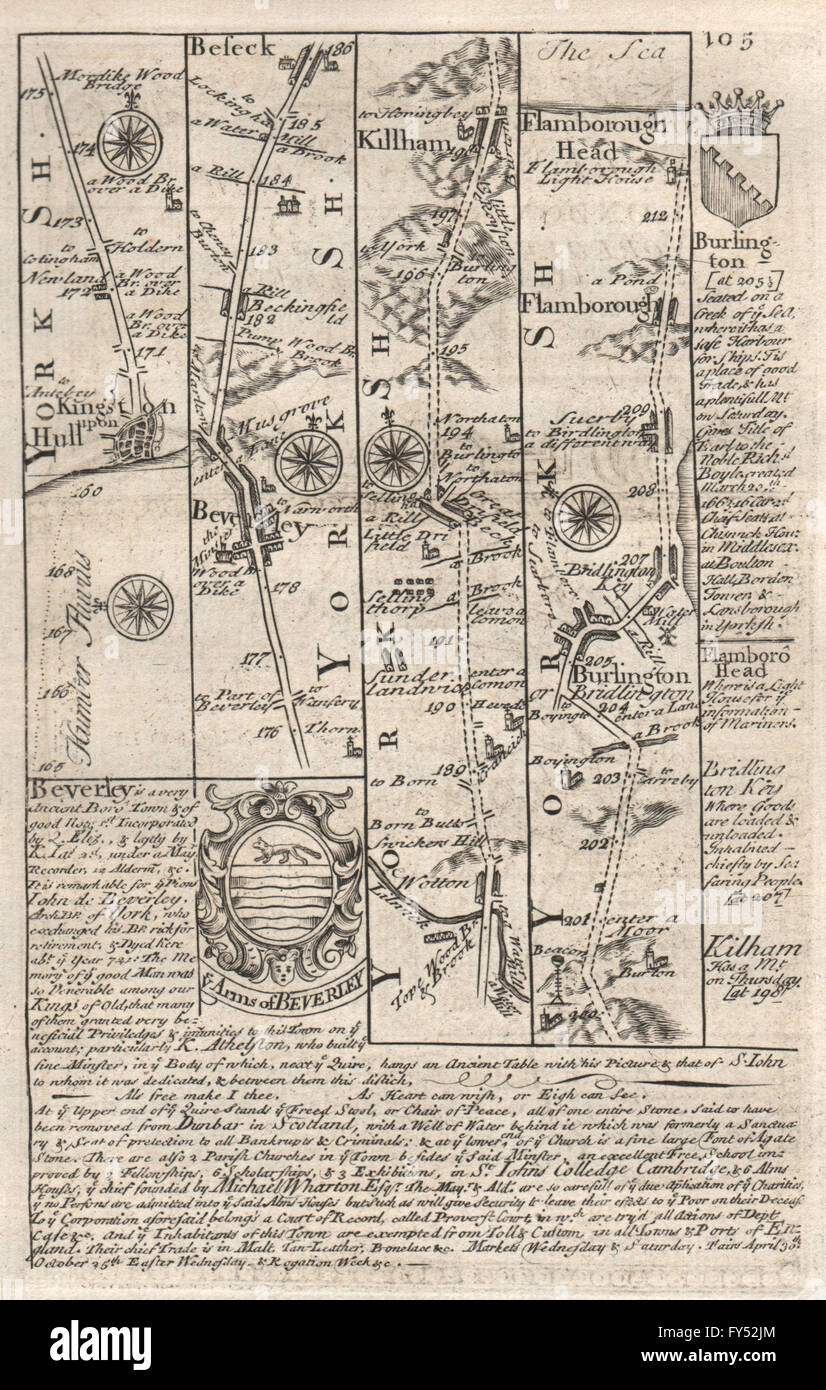 105
The Sea
175
Mordike Wood
Bridge
174
a Wood Br.
over a Dike
173
to
Cotingham
to
Holdern
Newland
172
a Wood
Br. over
a Dike
a Wood
Br. over
a Dike
171
to
Kingston
upon
Hull
YORK SH.
160
168
167
166
165
Humber Fluvius
Beseck
186
to
Lockington
a Water Mill
185
a Brook
a Rill
184
183
a Rill
Beckingfie
ld
182
Pump Wood Br.
Brook
Musgrove
to Warworth
Beverley
Wood Br
over a
Dike
178
177
to Part of
Beverley
to
176
Thorn
YORK SH.
to Honingbey
Killham
198
197
to York
to
Burling
ton
196
195
Northaton
194
to
Burlington
to
Northaton
to
Selling
a Rill
Great
Drifield
Beck
Little Dri
field
a Brook
a Brook
Selling
thorp
leave a
Comon
191
Sunder
landwick
enter a
Comon
190
189
to Born
to
Born Butts
Swickers Hill
Wotton
Tope Wood Br.
& Brook
YORK SH.
Flamborough
Head
Flamborough
Light House
212
a Pond
Flamborough
209
Suerby
to Birdlington
a different way
208
207
Bridlington
Key
Water
Mill
a Rill
205
Burlington
or Bridlington
204
enter a Lane
to
Boyington
a Brook
Boyington
203
to
Carneby
202
201
enter a
Moor
Beacon
Burton
200
YORK SH.
Burling-
ton
[at 205½]
Seated on a
Creek of ye Sea,
where it has a
safe Harbour
for Ships. Tis
a place of good
Trade, & has
a plentifull Mt
on Saturday.
Gives Title of
Earl to the
Noble Richd
Boyle, created
March 20th
Chief Seats at
Chiswick House
in Middlesex.
at Boulton
Hall, Borden
Tower, &
Lansborough
in Yorksh.
Flamboro
Head
Where is a Light
House for ye
information
of Mariners.
Bridling
ton Key
Where Goods
are loaded &
unloaded.
Inhabited
chiefly by Sea
faring People.
[at 207]
Kilham
Has a Mt
on Thursday
[at 198]
Beverley is a very
Ancient Boro' Town & of
good Note; 1st Incorporated
by Q. Eliz., & lastly by
K. Ja: 2d, under a May'r
Recorder, 12 Alderm, &c.
It is remarkable for ye Pious
John de Beverley,
Arch BP. of York, who
exchanged his BP. rick for
retirement, & Dyed here
abt ye Year 721: The Me
mory of ye good Man was
so Venerable among our
Kings of Old, that many
of them granted very be-
neficial Priviledges & imunities to this Town on ye
account; particularly K. Athelston, who built ye
fine Minster, in ye Body of which, next ye Quire, hangs an Ancient Table with his Picture & that of St. John
to whom it was dedicated, & between them this distich,
Als free make I thee, As Heart can wish, or Eigh can See.
At ye Upper end of ye Quire Stands ye Freed Stool, or Chair of Peace, all of one entire Stone, said to have
been removed from Dunbar in Scotland, with a Well of Water behind it which was formerly a Sanctua-
ry & Seat of protection to all Bankrupts & Criminals; & at ye lower end of ye Church is a fine large Font of Agate
Stone. There are also 2 Parish Churches in ye Town besides ye Said Minster, an excellent Free School im-
proved by 2 Fellowships, 6 Scholarships, & 3 Exhibicions, in St. Iohns Colledge Cambridge, & 6 Alms
Houses, ye chief founded by Michael Wharton Esqr. The Mayr. & Ald. are so carefull of ye due aplication of ye Charities,
yt no Persons are admitted into ye Said Alms Houses but Such as will give Security to leave their efects to ye Poor on their Decease
To ye Corporation aforesaid belongs a Court of Record, called Provest Court, in wch. are try'd all Actions of Dept
Case &c. and ye Inhabitants of this Town are exempted from Toll & Custom in all Towns & Ports of En-
gland. Their chief Trade is in Malt, Tan-Leather, Bonelace &c. Markets Wednesday & Saturday. Fairs April 30th
October 25th Easter Wednesday & Rogation Week &c.
ye Arms of BEVERLEY
alamy
Image ID: FY52JM
www.alamy.com